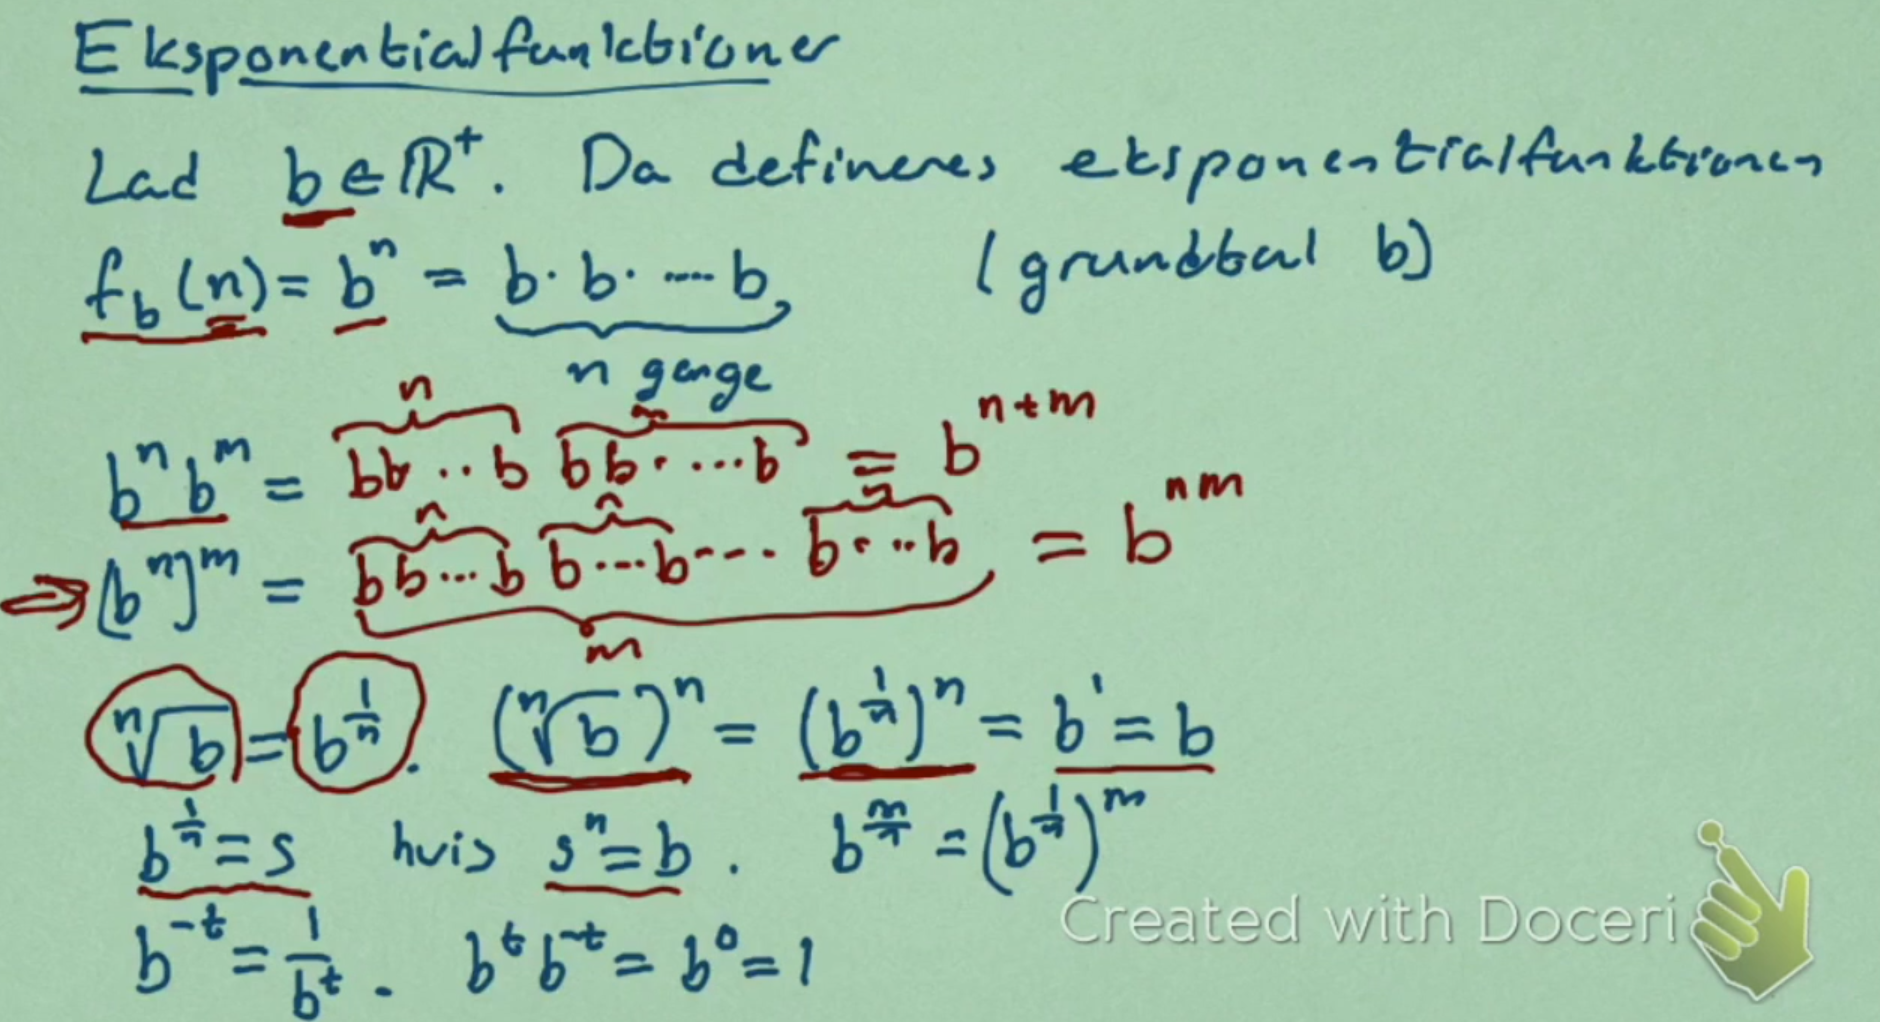 Eksponentialfunktioner
Lad b ∈ ℝ⁺. Da defineres eksponentialfunktionen
f_b(n) = bⁿ = b · b · ···· b, (grundtal b)
n gange
n m
bⁿ bᵐ = bb··b bb····b = bⁿ⁺ᵐ
n n n
⇒ (bⁿ)ᵐ = bb···b b····b---- b····b = bⁿᵐ
m
ⁿ√b = b^(1/n). (ⁿ√b)ⁿ = (b^(1/n))ⁿ = b¹ = b
b^(1/n) = s hvis sⁿ = b. b^(m/n) = (b^(1/n))ᵐ
b⁻ᵗ = 1/bᵗ. bᵗ b⁻ᵗ = b⁰ = 1
Created with Doceri